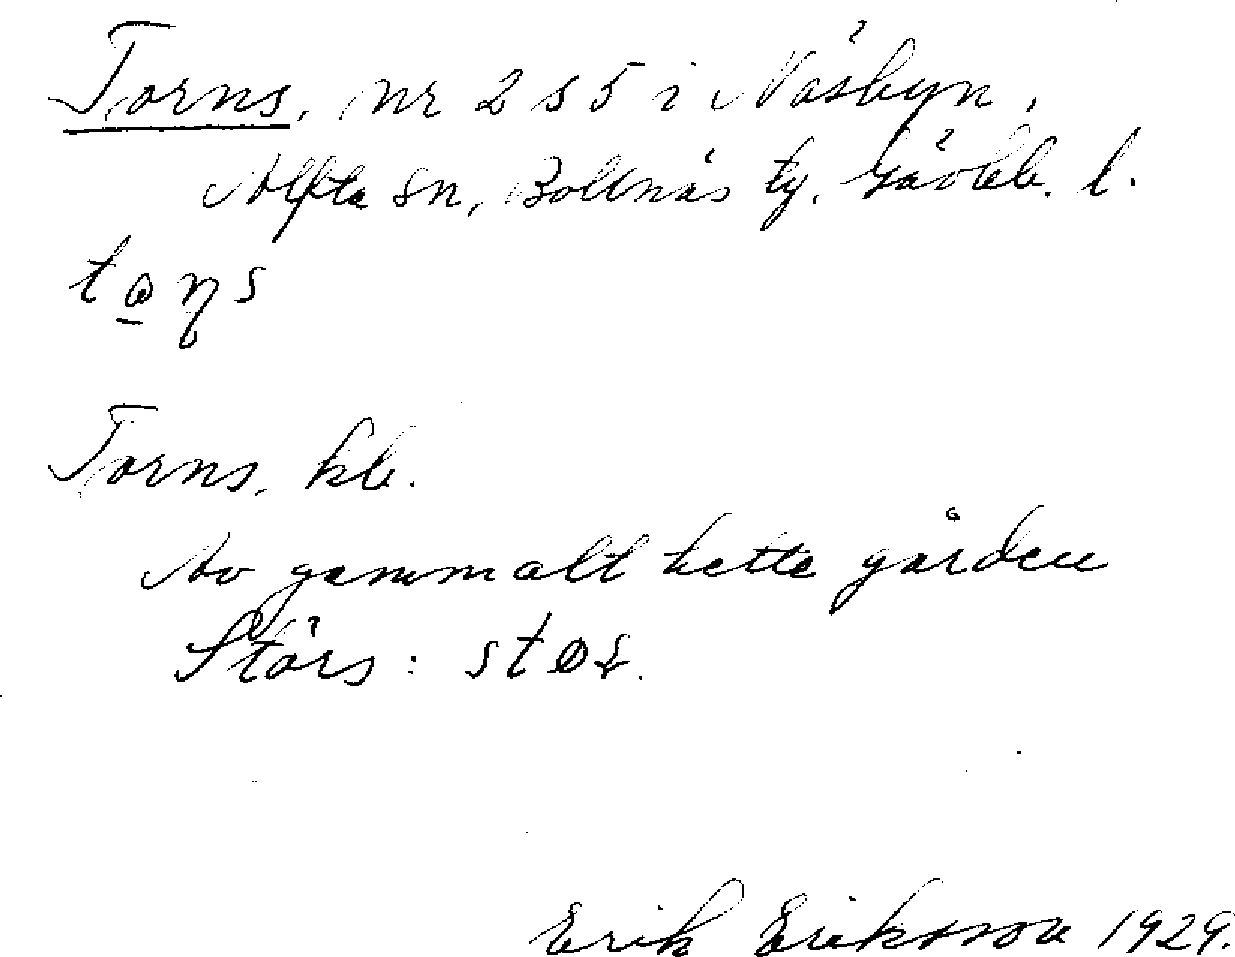 Torns, nr 2 s 5 i Näsbyn,
Alfta sn, Bollnäs tg. Gävleb. l.
Torns, kb.
Av gammalt hette gården
Störs:
Erik Eriksson 1929.